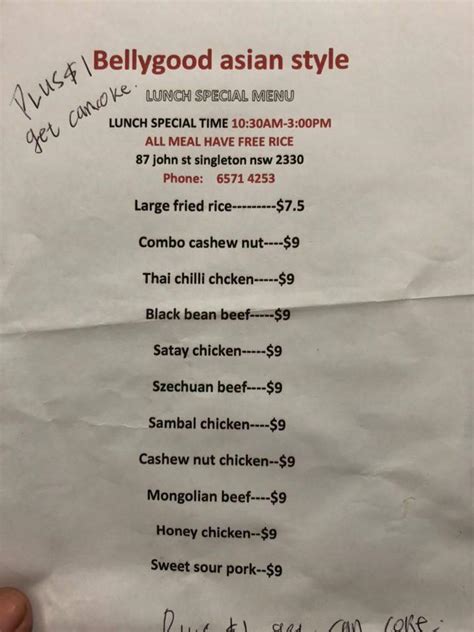 Plus $1
get can coke.
Bellygood asian style
LUNCH SPECIAL MENU
LUNCH SPECIAL TIME 10:30AM-3:00PM
ALL MEAL HAVE FREE RICE
87 john st singleton nsw 2330
Phone: 6571 4253
Large fried rice---------$7.5
Combo cashew nut----$9
Thai chilli chcken-----$9
Black bean beef-----$9
Satay chicken-----$9
Szechuan beef----$9
Sambal chicken----$9
Cashew nut chicken--$9
Mongolian beef----$9
Honey chicken--$9
Sweet sour pork--$9
Plus $1 get can coke.